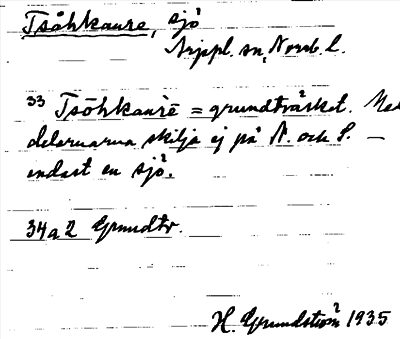 Tsåhkaure, sjö
Arjepl. sn, Norrb. l.
33 Tsōhkaùrē = grundträsket. Med
delarna skilja ej på N. och S. —
endast en sjö.
34a2 Grundtr.
H. Grundström 1935